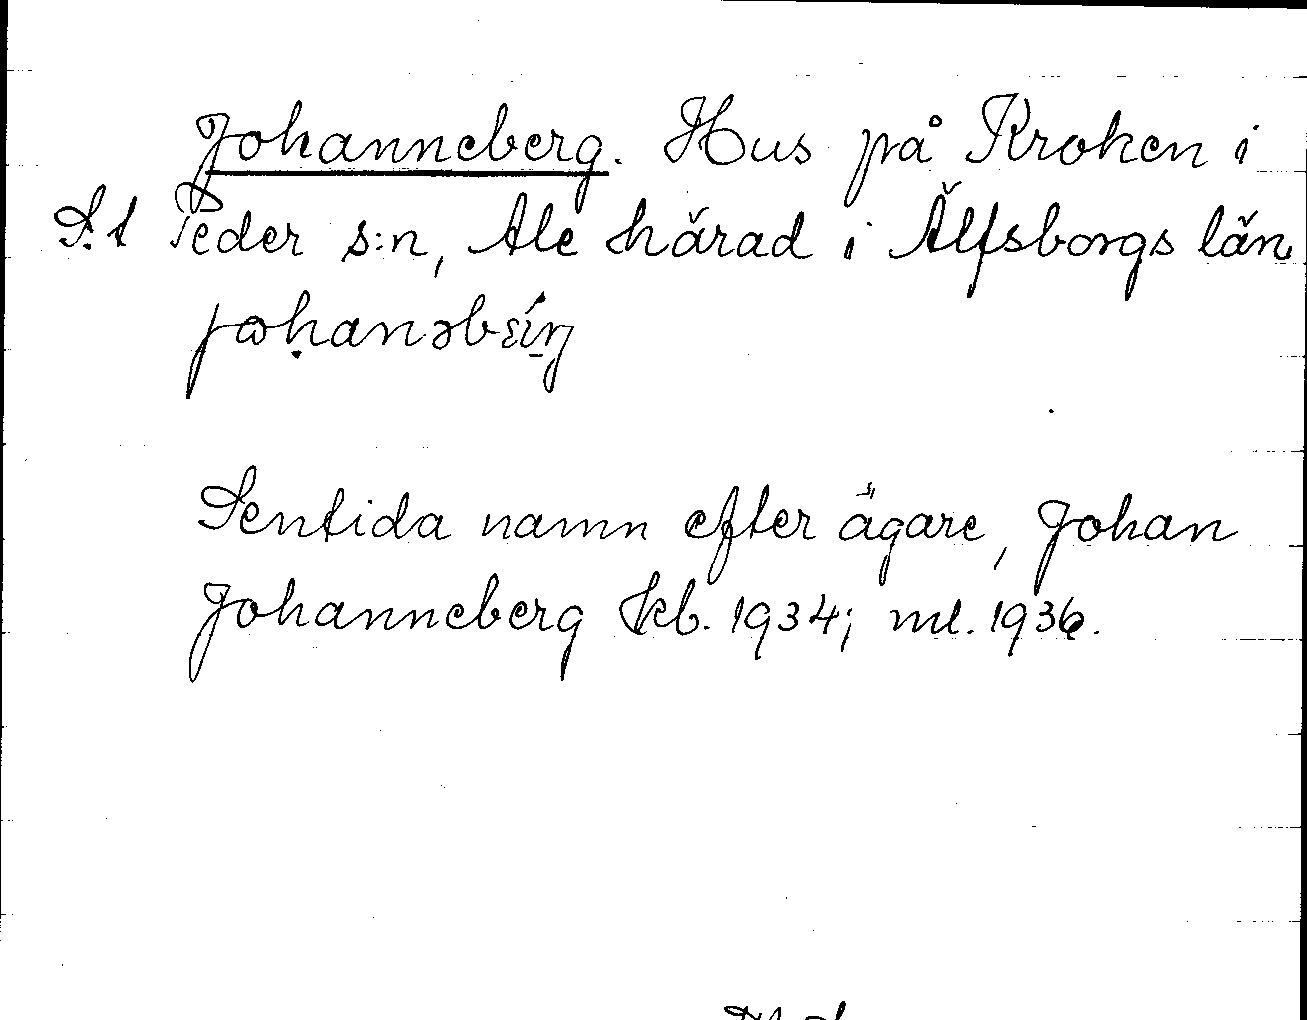 Johanneberg. Hus på Kroken i
S:t Peder s:n, Ale härad i Älfsborgs län
Sentida namn efter ägare, Johan
Johanneberg kb. 1934; ml. 1936.